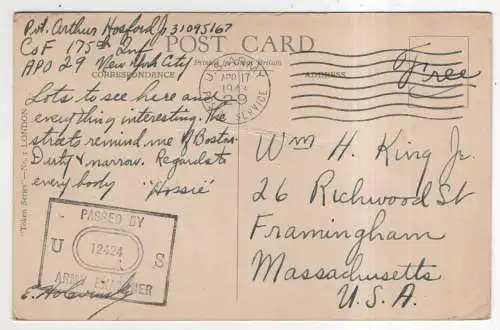 Pvt. Arthur Hosford Jr 31095167
Co F 175th Inf
APO 29 New York City
POST CARD
Printed in Great Britain
CORRESPONDENCE
ADDRESS
Free
APR 17
1943
29
SERVICE
Lots to see here and
everything interesting. The
streets remind me of Boston.
Dirty & narrow. Regards to
every body "Hossie"
"Token Series"—No. : LONDON
Wm H. King Jr.
26 Richwood St
Framingham
Massachusetts
U.S.A.
PASSED BY
U 12424 S
ARMY EXAMINER